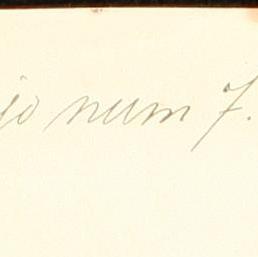 io num 7.